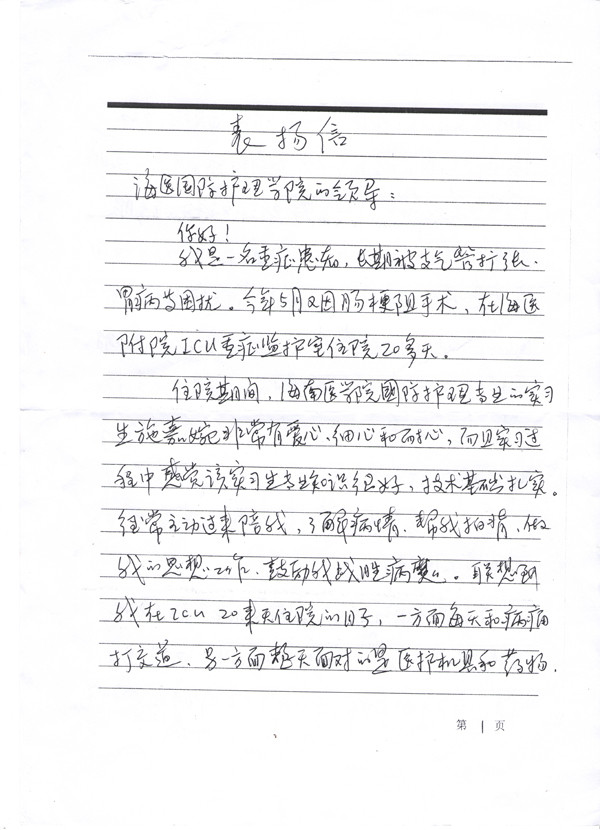 表扬信
海医国际护理学院的领导：
你好！
我是一名重症患者，长期被支气管扩张、
胃病等困扰。今年5月又因肠梗阻手术，在海医
附院ICU重症监护室住院20多天。
住院期间，海南医学院国际护理专生的实习
生施嘉婉非常有爱心、细心和耐心，而且实习过
程中感觉该实习生专业知识很好，技术基础扎实。
经常主动过来陪我，了解病情、帮我拍背、做
我的思想工作、鼓励我战胜病魔。联想到
我在ICU 20来天住院的日子，一方面每天和病痛
打交道，另一方面整天面对的是医护机器和药物，
第 1 页